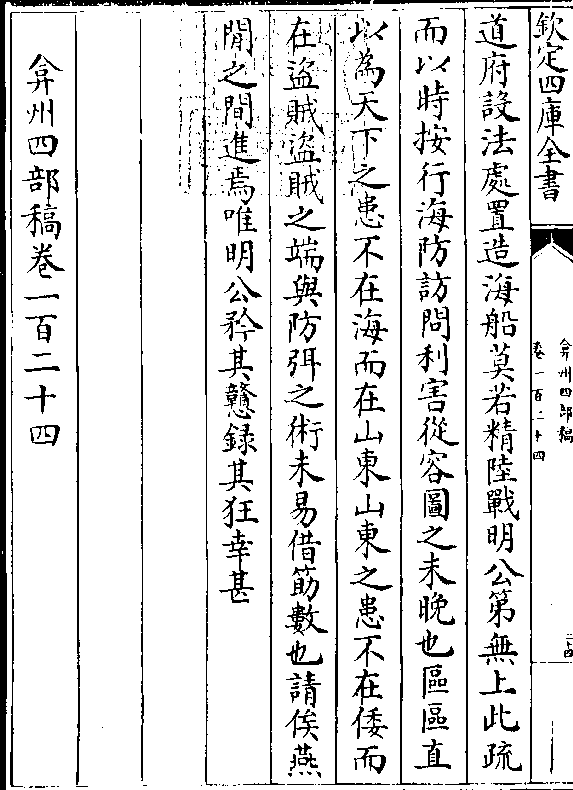 欽定四庫全書
弇州四部稿
卷一百二十四
二十四
道府設法處置造海船莫若精陸戰明公第無上此疏
而以時按行海防訪問利害從容圖之未晚也區區直
以為天下之患不在海而在山東山東之患不在倭而
在盜賊盜賊之端與防弭之術未易借筯數也請俟燕
閒之間進焉唯明公矜其戇録其狂幸甚
弇州四部稿卷一百二十四